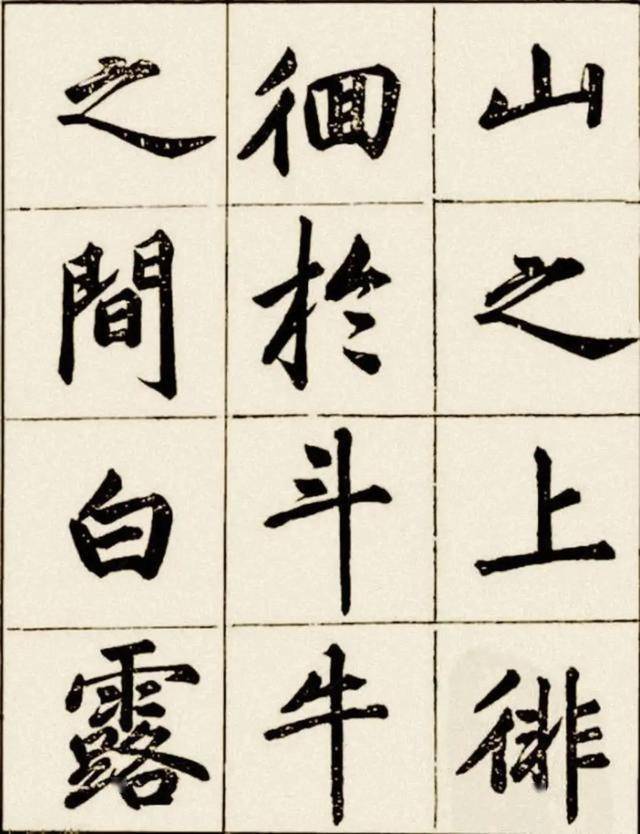 山之上徘
徊於斗牛
之間白露